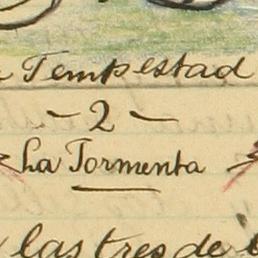 Tempestad
- 2 -
La Tormenta
las tres de